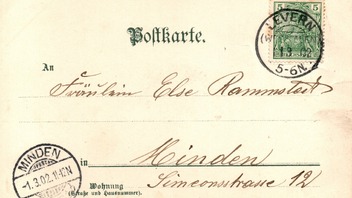 5 5
LEVERN
1 3 02
5-6N.
Postkarte.
An
Fräulein Else Rammstedt
in Minden
MINDEN
-1.3.02.11-12N
Wohnung
(Straße und Hausnummer).
Simeonsstrasse 12